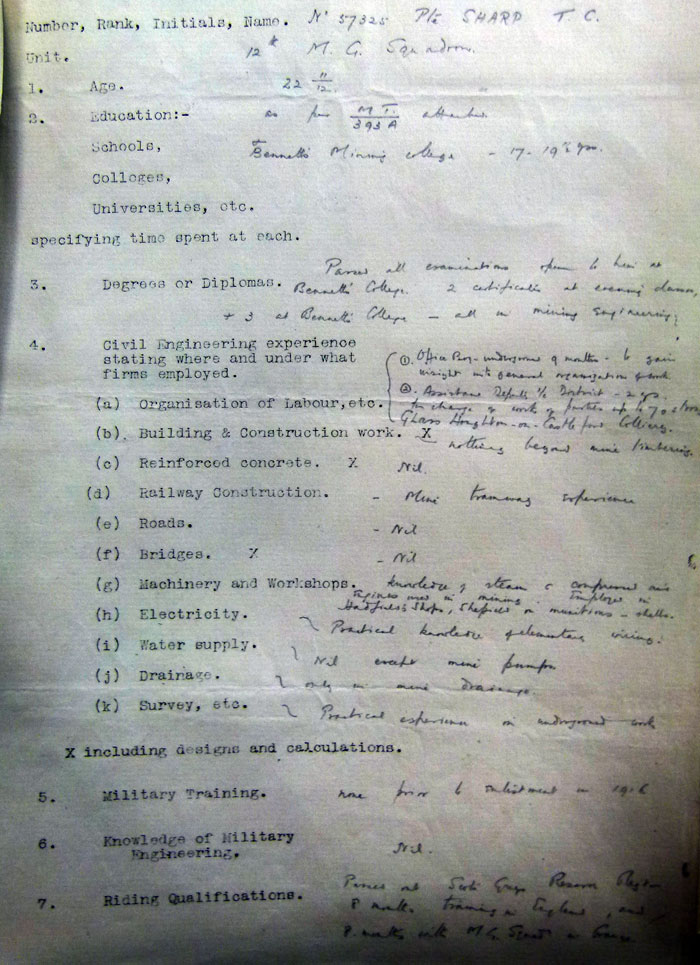 Number, Rank, Initials, Name. No 57325 Pte SHARP T. C.
Unit. 12th M. G. Squadron.
1. Age. 22 11/12.
2. Education:- as per M.T. 393A attached.
Schools, Bennett's Mining College - 17 - 19
Colloges,
Universities, etc.
specifying time spent at each.
3. Degrees or Diplomas. Passed all examinations open to him at
Bennett's College. 2 certificates at evening classes,
+ 3 at Bennett's College - all in mining Engineering;
4. Civil Engineering experience
stating where and under what
firms employed.
(1). Office Boy - underground 9 months - to gain
insight into general organization of work.
(2). Assistant Deputy i/c District - 2 yrs.
In charge of work of parties up to 70 strong
Glass Houghton-on-Castleford Colliery.
(a) Organisation of Labour, etc.
(b). Building & Construction work. X nothing beyond mine timbering.
(c) Reinforced concrete. X Nil.
(d) Railway Construction. - Mine tramway experience
(e) Roads. - Nil
(f) Bridges. X - Nil
(g) Machinery and Workshops. Knowledge of steam & compressed air
Engines used in mining. Employed in
Hadfield's Shops, Sheffield on munitions - shells.
(h) Electricity. Practical knowledge of elementary wiring.
(i) Water supply. Nil except mine pumps
(j) Drainage. only in mine drainage.
(k) Survey, etc. Practical experience in underground work
X including designs and calculations.
5. Military Training. none prior to enlistment in 1916
6. Knowledge of Military
Engineering. Nil.
7. Riding Qualifications. Passed out Scots Greys Reserve Regt.
8 months training in England, and
8 months with M.G. Squad. in France.